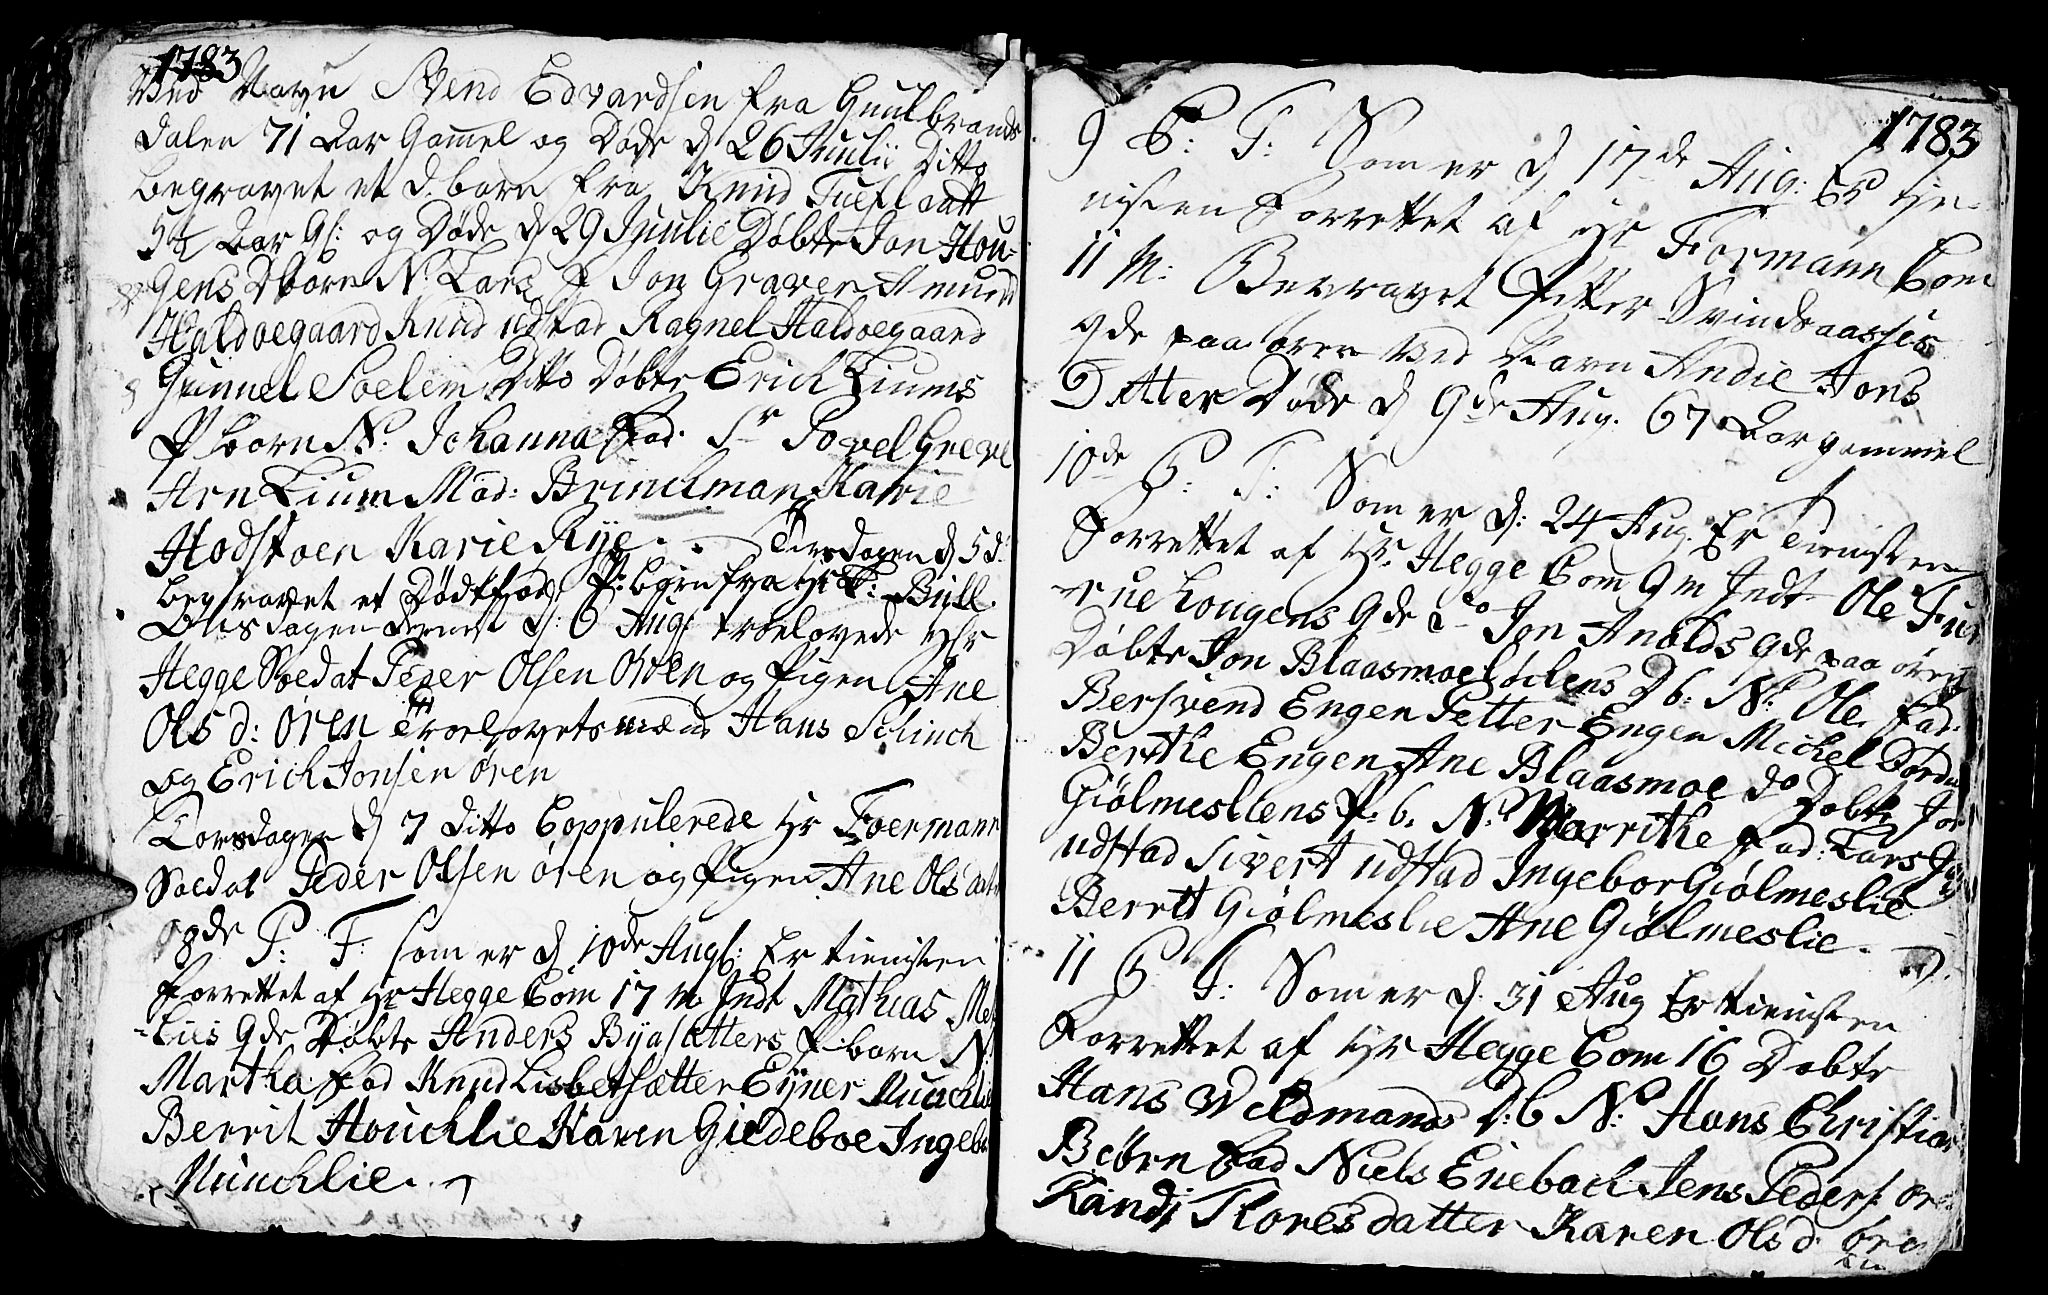 1783
Ved Navn Svend Edvardsen fra Guulbrands
Dalen 71 Aar Gamel og Døde d 26 Juulii Ditto
begravet et d. barn fra Knud
5½ Aar Gl: og Døde d 29 Juulie Døbte Jon Hou-
gens Dbarn N: Lars F Jon Graven Amund
Haldoegaard Knud udstad Ragnel Haldoegaard
Gunnel Soelem Ditto Døbte Erich Liums
P barn N: Johanna Fad: Sr Povel Greve
Arn Lium Mad: Brinchman Karie
Hodstoen Karie Rye. Tirsdagen d 5 d:
begravet et Dødfød P: barn fra Hr B: Bull.
Onsdagen dernest d: 6 Aug troelovede Hr
Hegge Soldat Peder Olsen Øren og Pigen Ane
Ols d: Øren Troelovetsmænd Hans Schinch
og Erich Jonsen Øren
Torsdagen d 7 Ditto Coppulerede Hr Foermann
Soldat Peder Olsen Øren og Pigen Ane Ols dat
8de P: F: som er d 10de Augl: Er tienisten
forrettet af Hr Hegge Com 17 m Indt Mathias Mos
-liis Qde Døbte Anders Byasætters P. barn N
Martha Fad Knud Lisbetsætter Eyner Muuchlie
Berrit Houchlie Karen Gieldeboe Ingebor
Muuchlie.
1783
9 P: T: Som er d 17de Aug: Er tie-
nisten Forrettet af Hr Formann Com
11 M: Bevravet Pitter Svindsaasses
Qde paa øren ved Navn Andie Jons
Datter Døde d 9de Aug. 67 Aar gammel
10de P: T: Som er d: 24 Aug. Er Tienisten
Forrettet af Hr. Hegge Com 9m Indt Ole Fur
-ue hougens Qde do Jon Anolds Qde paa øren
Døbte Jon Blaasmoelølens D b: N: Ole. Fad:
Bersvend Engen Petter Engen Michel Dordi
Berithe Engen Ane Blaasmoe do Døbte Jon
Giølmesliens P. b. N: Merrithe Fad: Lars
udstad Sivert udstad Ingebor Giølmeslie
Berrit Giølmeslie Ane Giølmeslie.
11 P. T: Som er d: 31 Aug Er tienisten
Forrettet af Hr Hegge Com 16 Døbte
Hans Veldmands D: b N: Hans Christian
Beørn Fad Niels Eneboch Jens Peders: øre
Randj Toresdatter Karen Ols d: øren